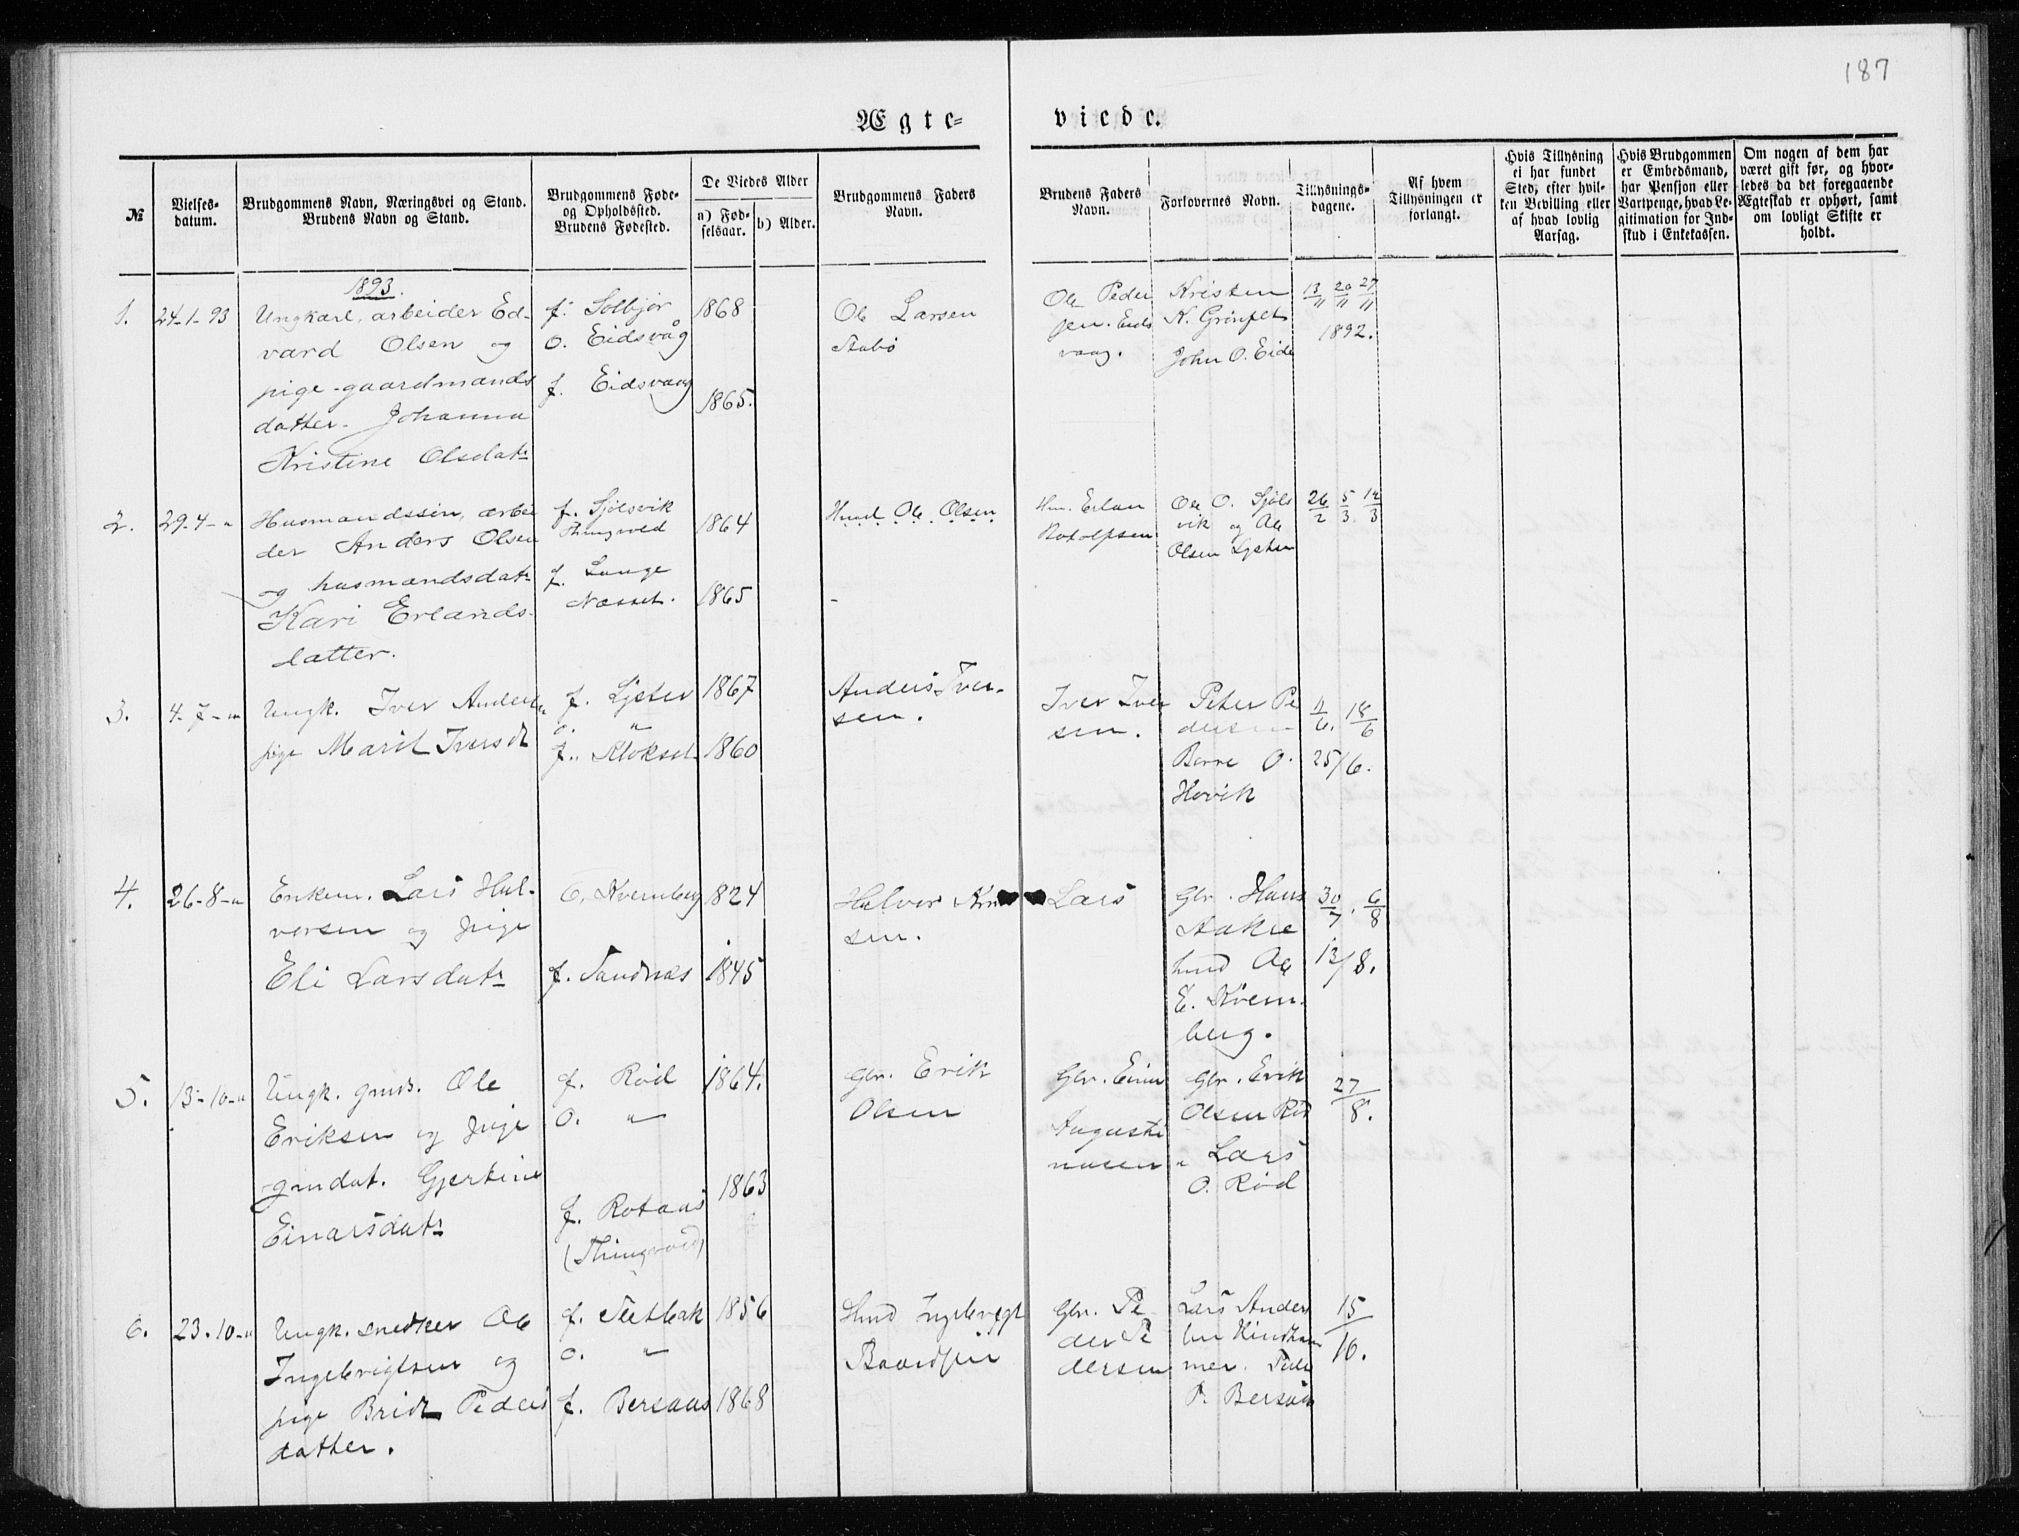 187
Ægte- viede.
№
Vielses-
datum.
Brudgommens Navn, Næringsvei og Stand.
Brudens Navn og Stand.
Brudgommens Føde-
og Opholdssted.
Brudens Fødested.
De Viedes Alder
a) Fød-
selsaar.
b) Alder.
Brudgommens Faders
Navn.
Brudens Faders
Navn.
Forlovernes Navn.
Tillysnings-
dagene.
Af hvem
Tillysningen er
forlangt.
Hvis Tillysning
ei har fundet
Sted, efter hvil-
ken Bevilling eller
af hvad lovlig
Aarsag.
Hvis Brudgommen
er Embedsmand,
har Pension eller
Vartpenge, hvad Le-
gitimation for Ind-
skud i Enkekassen.
Om nogen af dem har
været gift før, og hvor-
ledes da det foregaaende
Ægteskab er ophørt, samt
om lovligt Skifte er
holdt.
1893.
1.
24-1-93
Ungkarl, arbeider Ed-
vard Olsen og
pige-gaardmands
datter. Johanna
Kristine Olsdatr
f. Solbjør
o. Eidsvåg
f. Eidsvaag
1868
1865.
Ole Larsen
Ole Peder
sen. Eids
vaag.
Kristen
K. Grønset
John O. Eide
13/11 20/11 27/11
1892.
2.
29-4-"
Husmandssøn, arbei
der Anders Olsen
og husmandsdatr
Kari Erlands-
datter.
f. Sjølsvik
Thingvold
f. Lange
Næsset.
1864
1865
Husmd Ole Olsen
-
Hm. Erlan
Rotolfsen
Ole O. Sjøls
vik og Ole
Olsen Ljsten
26/2 5/3 12/3
3.
4-7-"
Ungk. Iver Anders
pige Marit Iversdt
f. Ljster
o. "
f. Klokset
1867
1860
Anders Iver-
sen.
Iver Iver
sen.
Peter Pe
dersen
Berre O.
Hovik
11/6. 18/6
25/6.
4.
26-8-"
Enkem. Lars Hal-
vorsen og pige
Eli Larsdatr
o. Kvernberg
f. Sandnæs
1824
1845
Halvor
sen.
Lars
Gbr. Hans
Aakre
lund Ole
E. Kvern-
berg.
30/7. 6/8
13/8.
5.
13-10-"
Ungk. gmds. Ole
Eriksen og pige
gmdat. Gjertine
Einarsdatr
f. Rød
o. "
f. Rotaas
(Thingvold)
1864.
1863
Gbr. Erik
Olsen
Gbr. Einar
Augusti
nusen
Gbr. Erik
Olsen Rød
" Lars
O. Rød
27/8.
6.
23.10-"
Ungk. snedker Ole
Ingebrigtsen og
pige Brit Peders
datter.
f. Teetbak
o. "
f. Bersaas
1856
1868
Hmd Ingebrigt
Baardsen
Gbr. Pe
der Pe
dersen
Lars Ander
sen Hindham
mer. Peder
P. Bersaas
15/10.